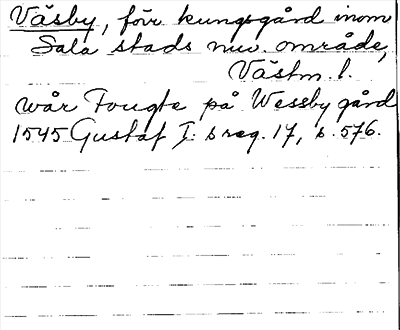 Väsby, förr kungsgård inom
Sala stads nuv. område,
Västm. l.
wår Fougte på Wessby gård
1545 Gustaf I: s reg. 17, s. 576.